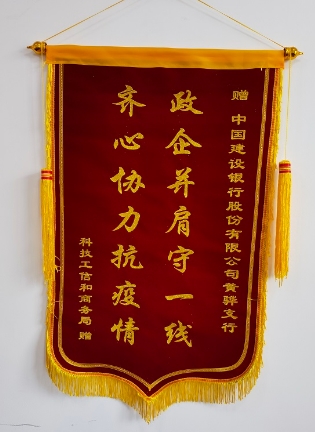 赠 中国建设银行股份有限公司黄骅支行
政企并肩守一线
齐心协力抗疫情
科技工信和商务局 赠